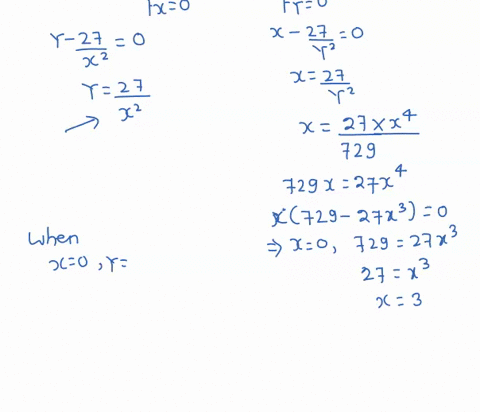 Fx=0
Fy=0
Y-27/x² = 0
Y = 27/x²
x - 27/Y² = 0
x = 27/Y²
x = 27×x⁴/729
729x = 27x⁴
x(729-27x³) = 0
⇒ x=0, 729 = 27x³
27 = x³
x = 3
When
x=0, Y=